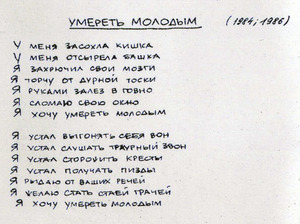 УМЕРЕТЬ МОЛОДЫМ (1984, 1986)
У МЕНЯ ЗАСОХЛА КИШКА
У МЕНЯ ОТСЫРЕЛА БАШКА
Я ЗАХРЮЧИЛ СВОИ МОЗГИ
Я ТОРЧУ ОТ ДУРНОЙ ТОСКИ
Я РУКАМИ ЗАЛЕЗ В ГОВНО
Я СЛОМАЮ СВОЮ ОКНО
Я ХОЧУ УМЕРЕТЬ МОЛОДЫМ
Я УСТАЛ ВЫГОНЯТЬ СЕБЯ ВОН
Я УСТАЛ СЛУШАТЬ ТРАУРНЫЙ ЗВОН
Я УСТАЛ СТОРОНИТЬ КРЕСТЫ
Я УСТАЛ ПОЛУЧАТЬ ПИЗДЫ
Я РЫДАЮ ОТ ВАШИХ РЕЧЕЙ
Я ЖЕЛАЮ СТАТЬ СТАЕЙ ГРАЧЕЙ
Я ХОЧУ УМЕРЕТЬ МОЛОДЫМ